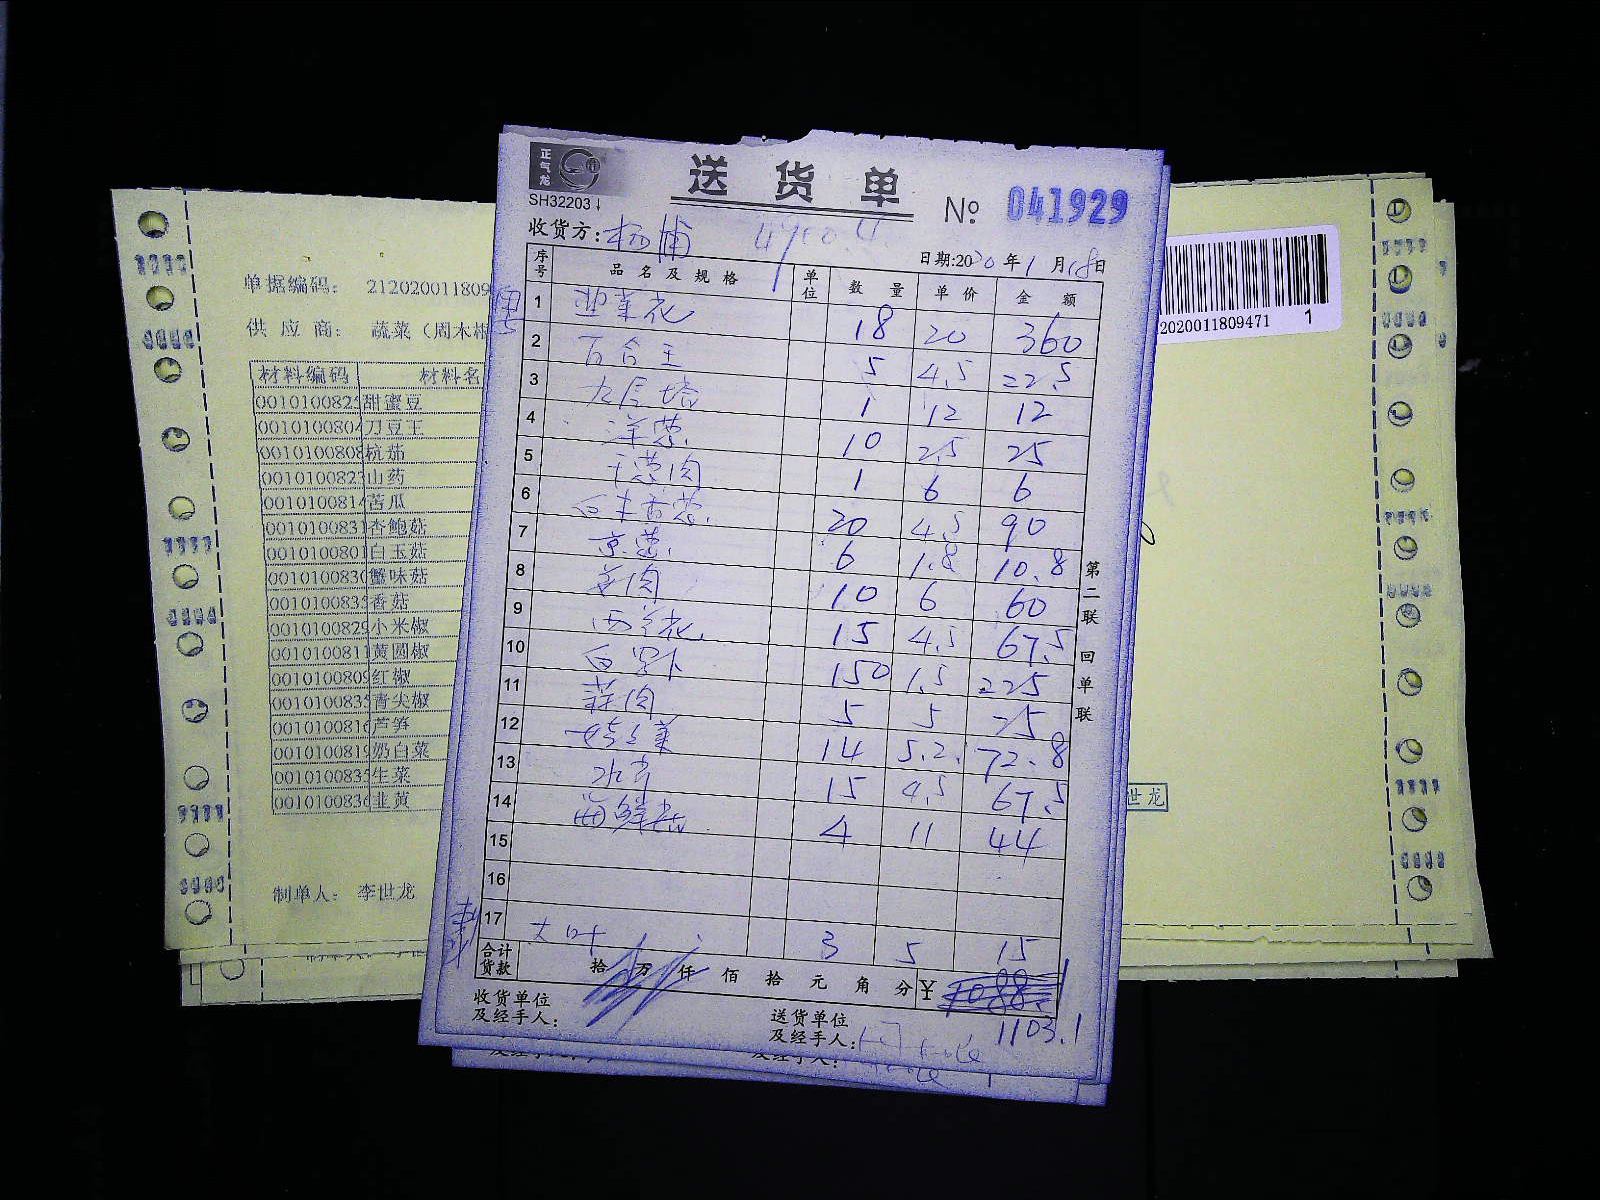 正气龙
SH32203
送货单
№ 041929
收货方: 杨浦
日期:2020年1月18日
序号 品名及规格 单位 数量 单价 金额
1 韭菜花 18 20 360
2 百合王 5 4.5 22.5
3 1 12 12
4 洋葱 10 2.5 25
5 干葱肉 1 6 6
6 20 4.5 90
7 京葱 6 1.8 10.8
8 姜肉 10 6 60
9 西兰花 15 4.5 67.5
10 白萝卜 150 1.5 225
11 蒜肉 5 5 25
12 14 5.2 72.8
13 水芹 15 4.5 67.5
14 海鲜菇 4 11 44
15
16
17 大叶 3 5 15
合计货款 拾 万 仟 佰 拾 元 角 分 ¥
1103.1
收货单位及经手人:
送货单位及经手人:
第二联 回单联
单据编码: 212020011809
供应商: 蔬菜(周木根
材料编码 材料名
001010082 甜蜜豆
001010080 刀豆王
001010080 杭茄
001010082 山药
001010081 苦瓜
001010083 杏鲍菇
001010080 白玉菇
001010083 蟹味菇
001010083 香菇
001010082 小米椒
001010081 黄圆椒
001010080 红椒
001010083 青尖椒
001010081 芦笋
001010081 奶白菜
001010083 生菜
001010083 韭黄
制单人: 李世龙
2020011809471 1
世龙